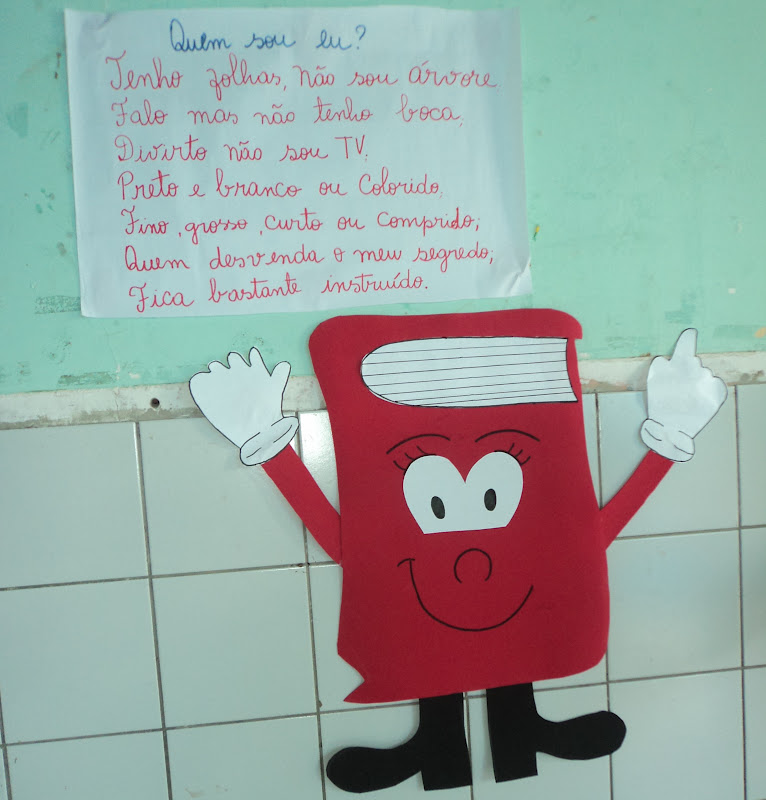 Quem sou eu?
Tenho folhas, não sou árvore
Falo mas não tenho boca;
Divirto não sou TV;
Preto e branco ou Colorido;
Fino, grosso, curto ou comprido;
Quem desvenda o meu segredo;
Fica bastante instruído.